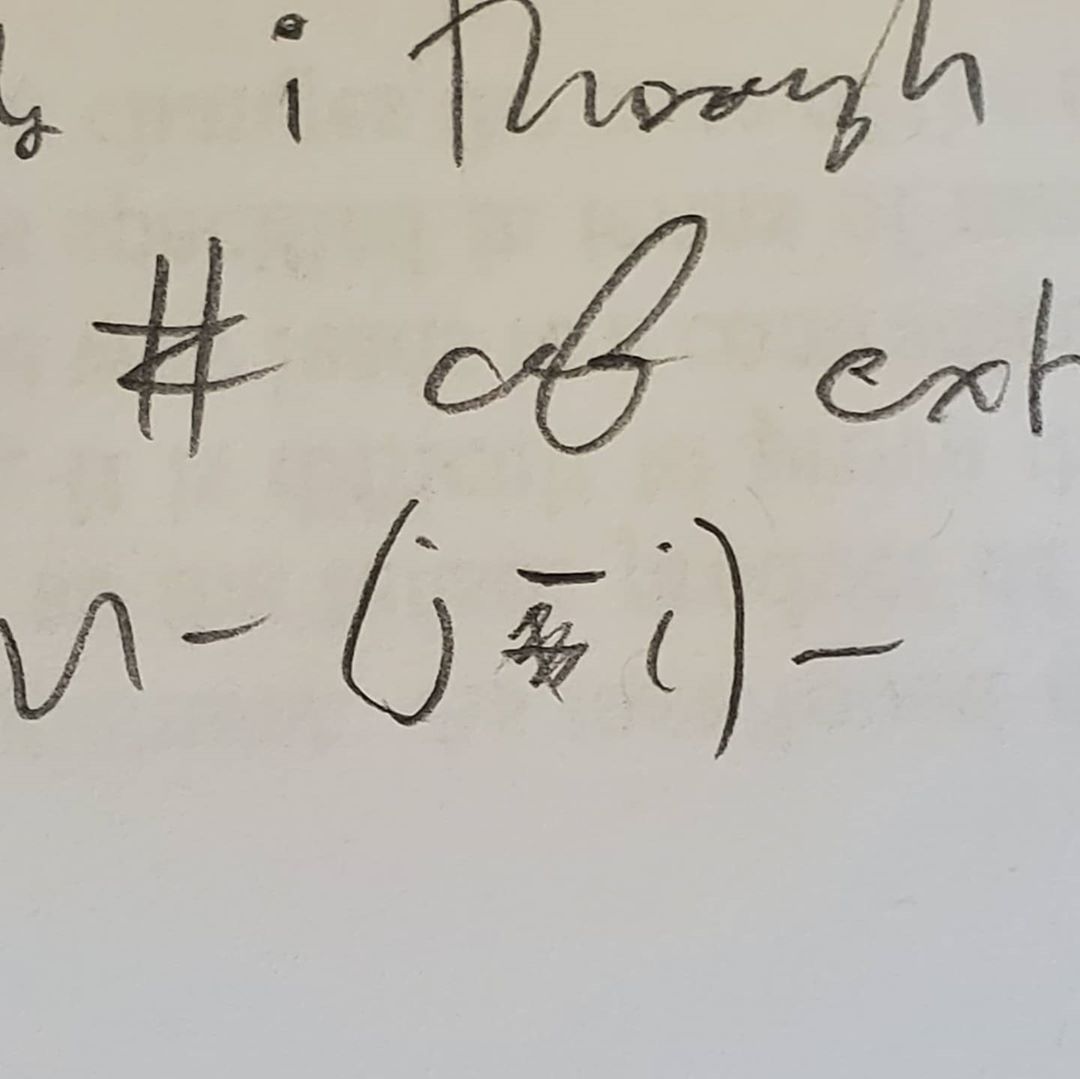 i though
# of ext
n - (j - i) -